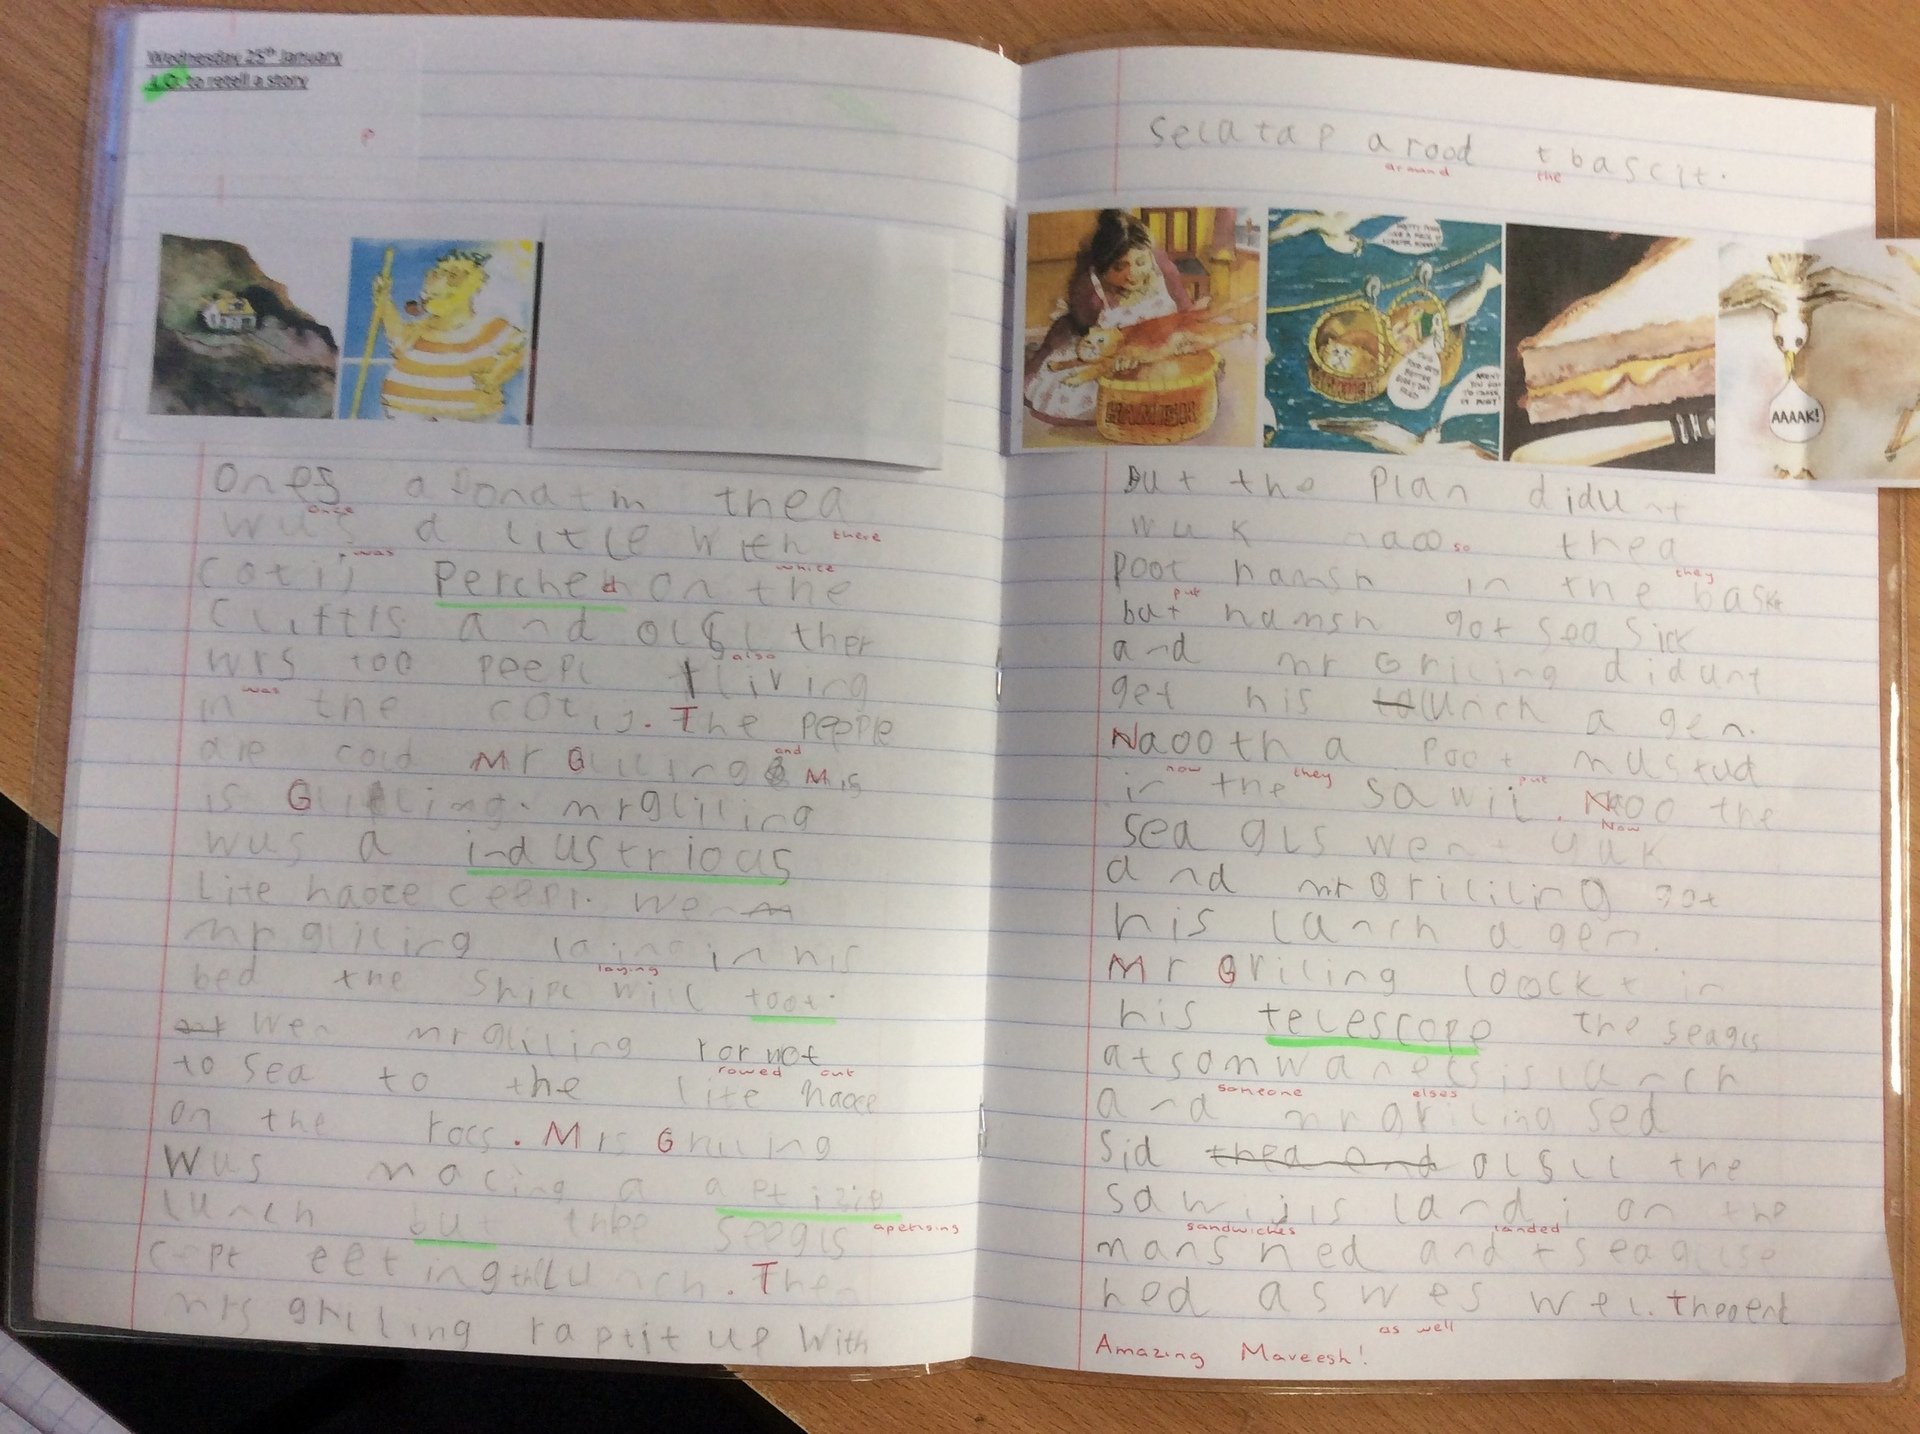 Wednesday 25th January
L.O. to retell a story
ones a ponatm thea
once
wus a little with
there
was
cotij perched on the
white
cliffls and olsl ther
wrs too peepl living
also
in the cotij. The people
was
are cold Mr Gliling
and
Mis
is Gliling. mr gliling
wus a industrious
lite haoce ceepr. wen
mr gliling laing in his
bed the shipc will toot.
laying
wen mr gliling ror not
to sea to the lite haoce
rowed out
on the rocs. Mrs Griling
wus macing a aptizie
lunch but thee seegls
apetising
cept eeting the lunch. Then
mrs griling raptit up with
selatap arood t bascit.
around the
AAAAK!
HAMISH
but the plan didunt
wuk naoo thea
so
poot hamsh in the baskt
they
put
but hamsh got sea sick
and mr Griling didunt
get his lunch a gen.
Naoo tha poot mustud
in the sawij. Naoo the
now they put
sea gls went yuk
Now
and mr Griliing got
his lunch a gen.
Mr Griling loockt in
his telescope the seagls
at somwanelsis lunch
and mr griling sed
someone elses
sid thea end olsll the
sawijis landi on the
sandwiches landed
mans hed and t seaglse
hed as wes wel. the eent
as well
Amazing Maveesh!